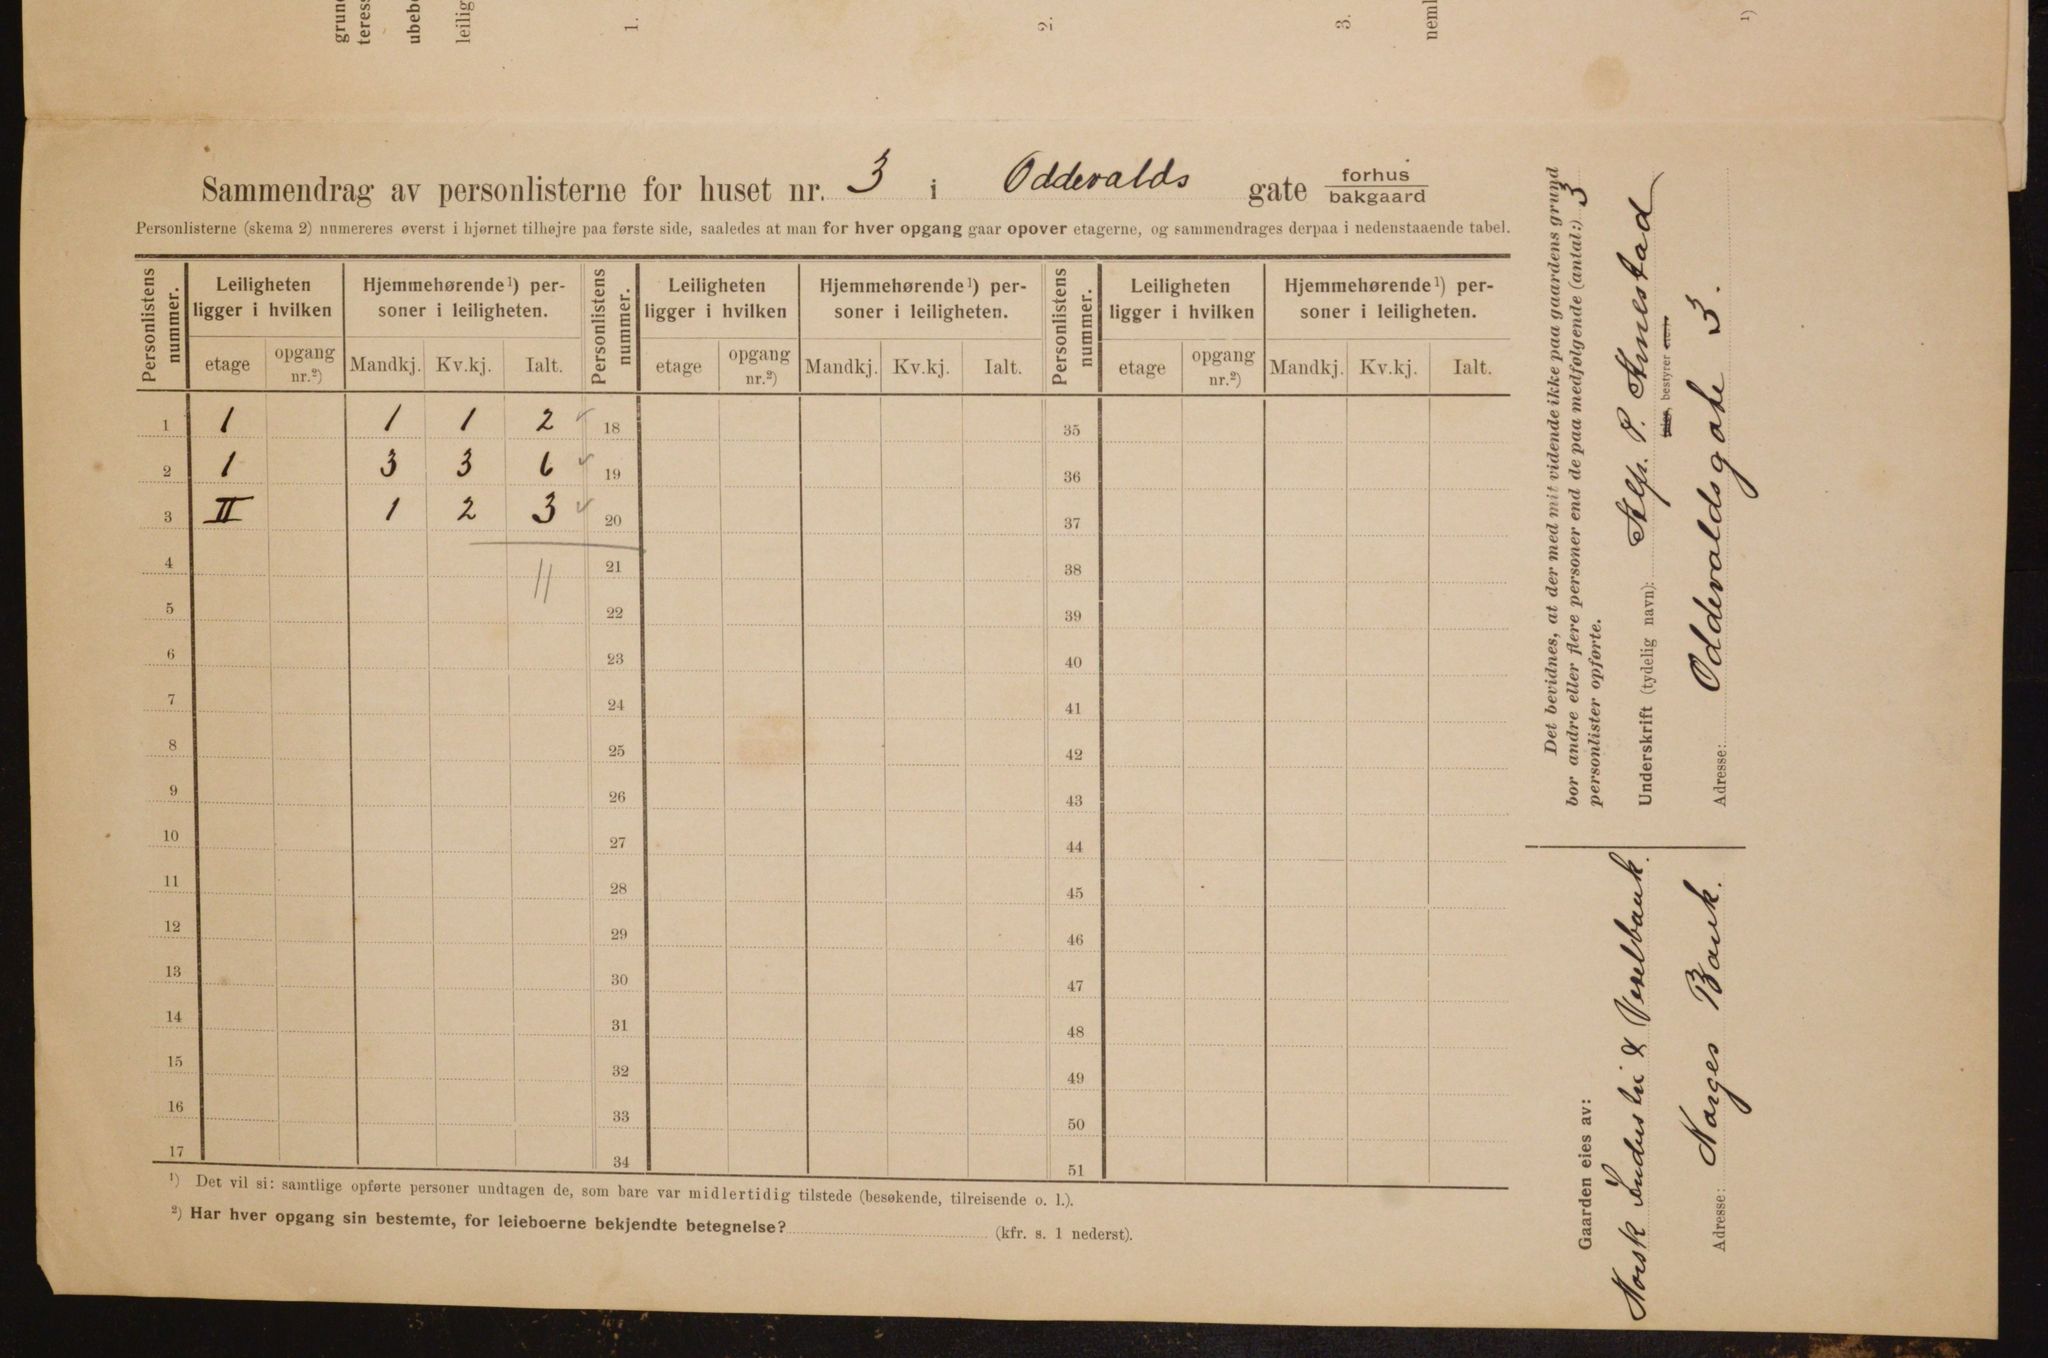 grun
teres
ubeb
leilig
1.
2.
3.
neml
¹)
Sammendrag av personlisterne for huset nr. 3 i Oddevalds gate forhus/bakgaard
Personlisterne (skema 2) numereres øverst i hjørnet tilhøjre paa første side, saaledes at man for hver opgang gaar opover etagerne, og sammendrages derpaa i nedenstaaende tabel.
Personlistens nummer. Leiligheten ligger i hvilken Hjemmehørende¹) personer i leiligheten. Personlistens nummer. Leiligheten ligger i hvilken Hjemmehørende¹) personer i leiligheten. Personlistens nummer. Leiligheten ligger i hvilken Hjemmehørende¹) personer i leiligheten.
etage opgang nr.²) Mandkj. Kv.kj. Ialt. etage opgang nr.²) Mandkj. Kv.kj. Ialt. etage opgang nr.²) Mandkj. Kv.kj. Ialt.
1 1 1 1 2 18 35
2 1 3 3 6 19 36
3 II 1 2 3 20 37
4 11 21 38
5 22 39
6 23 40
7 24 41
8 25 42
9 26 43
10 27 44
11 28 45
12 29 46
13 30 47
14 31 48
15 32 49
16 33 50
17 34 51
¹) Det vil si: samtlige opførte personer undtagen de, som bare var midlertidig tilstede (besøkende, tilreisende o. l.).
²) Har hver opgang sin bestemte, for leieboerne bekjendte betegnelse? (kfr. s. 1 nederst).
Det bevidnes, at der med mit vidende ikke paa gaardens grund
bor andre eller flere personer end de paa medfølgende (antal:) 3
personlister opførte.
Underskrift (tydelig navn):
bestyrer
Adresse: Oddevaldsgate 3.
Gaarden eies av:
Norsk Industri & Vexelbank.
Adresse: Norges Bank.